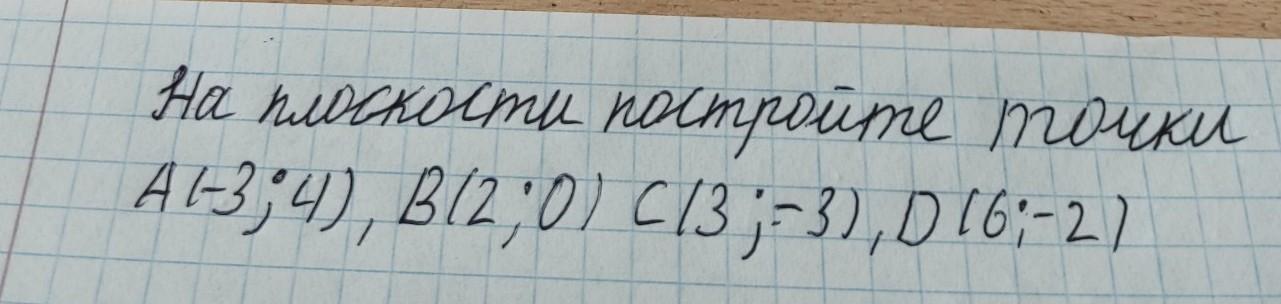 На плоскости постройте точки
A(-3;4), B(2;0) C(3;-3), D(6;-2)